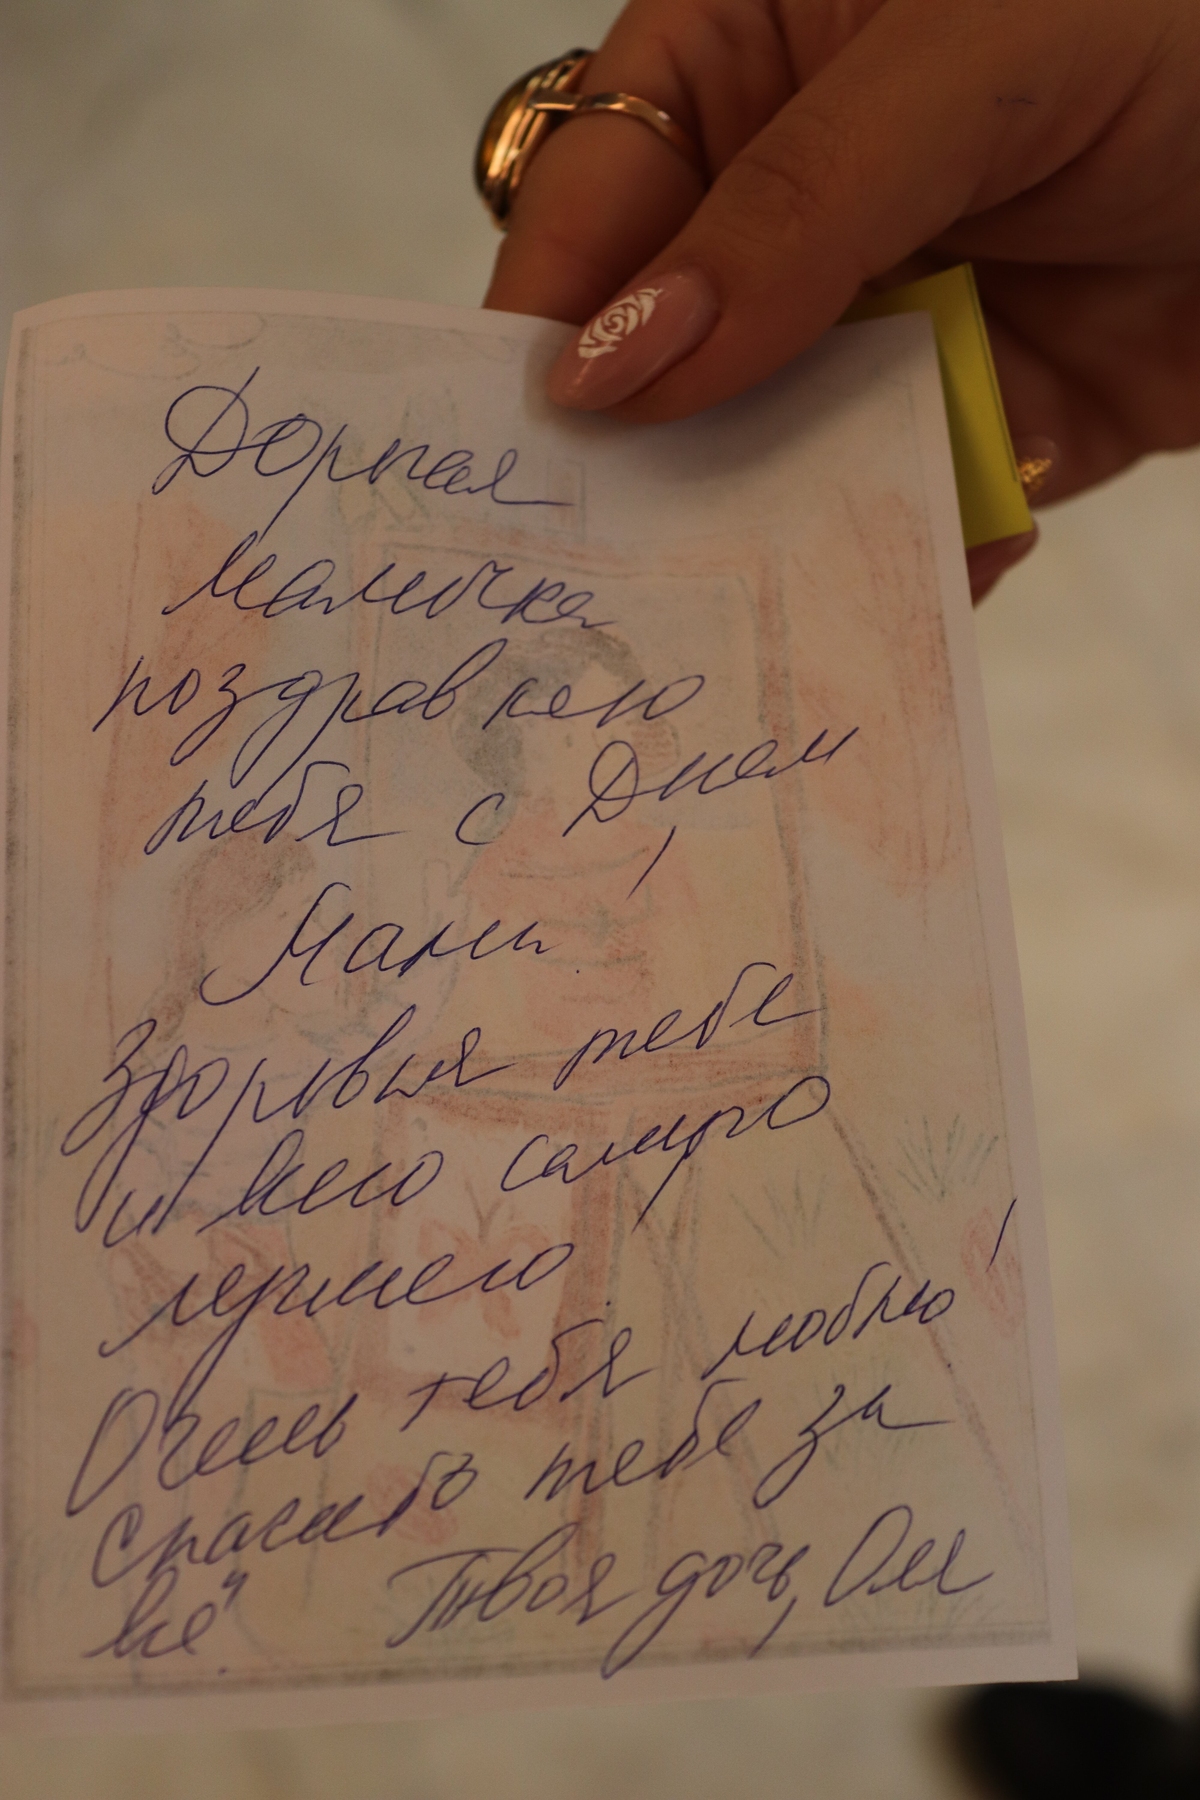 Дорогая
мамочка
поздравляю
тебя с Днем
Мамы!
Здоровья тебе
и всего самого
лучшего!
Очень тебя люблю!
спасибо тебе за
всё". Твоя дочь, Оля